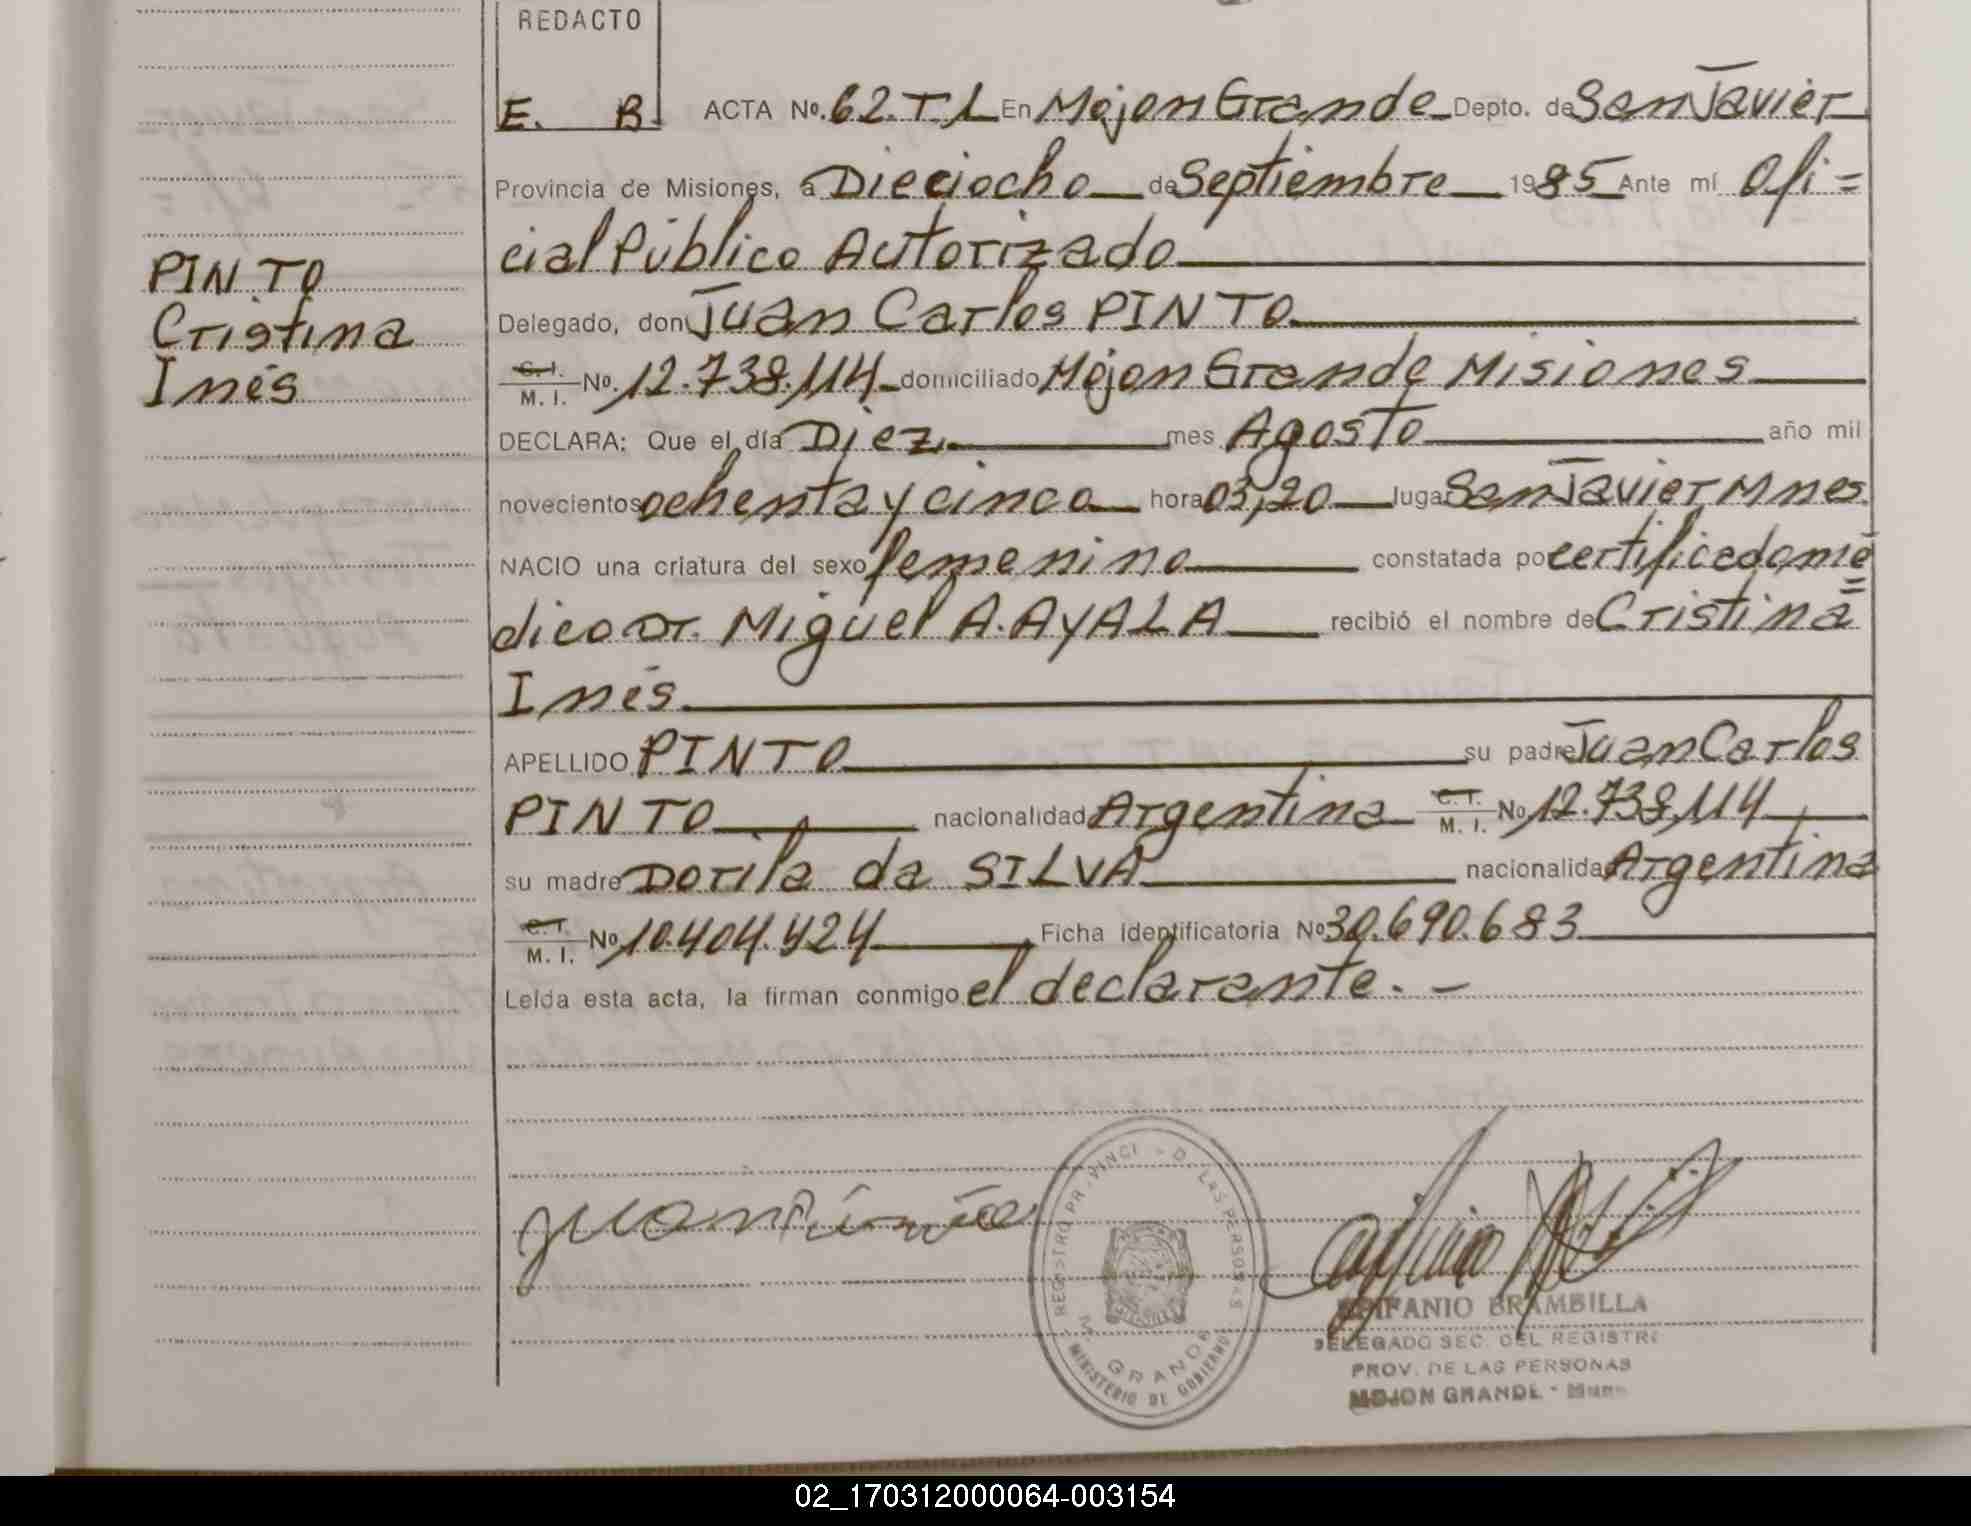 REDACTO
E. B. ACTA Nº. 62.T.1 En Mojon Grande Depto. de San Javier
Provincia de Misiones, a Dieciocho de Septiembre 1985 Ante mí Ofi=
cial Público Autorizado
Delegado, don Juan Carlos PINTO
C. I. / M. I. Nº. 12.738.114 domiciliado Mojon Grande Misiones
DECLARA: Que el día Diez mes Agosto año mil
novecientos ochenta y cinco hora 03,20 lugar San Javier Mnes.
NACIO una criatura del sexo femenino constatada po certificado mé=
dico Dr. Miguel A. AYALA recibió el nombre de Cristina
Inés.
APELLIDO PINTO su padre Juan Carlos
PINTO nacionalidad Argentina C. I. / M. I. Nº 12.738.114
su madre Dorila da SILVA nacionalidad Argentina
C. I. / M. I. Nº 10.404.424 Ficha Identificatoria Nº 30.690.683
Leída esta acta, la firman conmigo el declarante. -
PINTO
Cristina
Inés
Juan Pinto
REGISTRO PROVINCI D LAS PERSONAS
M. GRANDE
MINISTERIO DE GOBIERNO
EPIFANIO BRAMBILLA
DELEGADO SEC. DEL REGISTR
PROV. DE LAS PERSONAS
MOJON GRANDE - Mnes
02_170312000064-003154